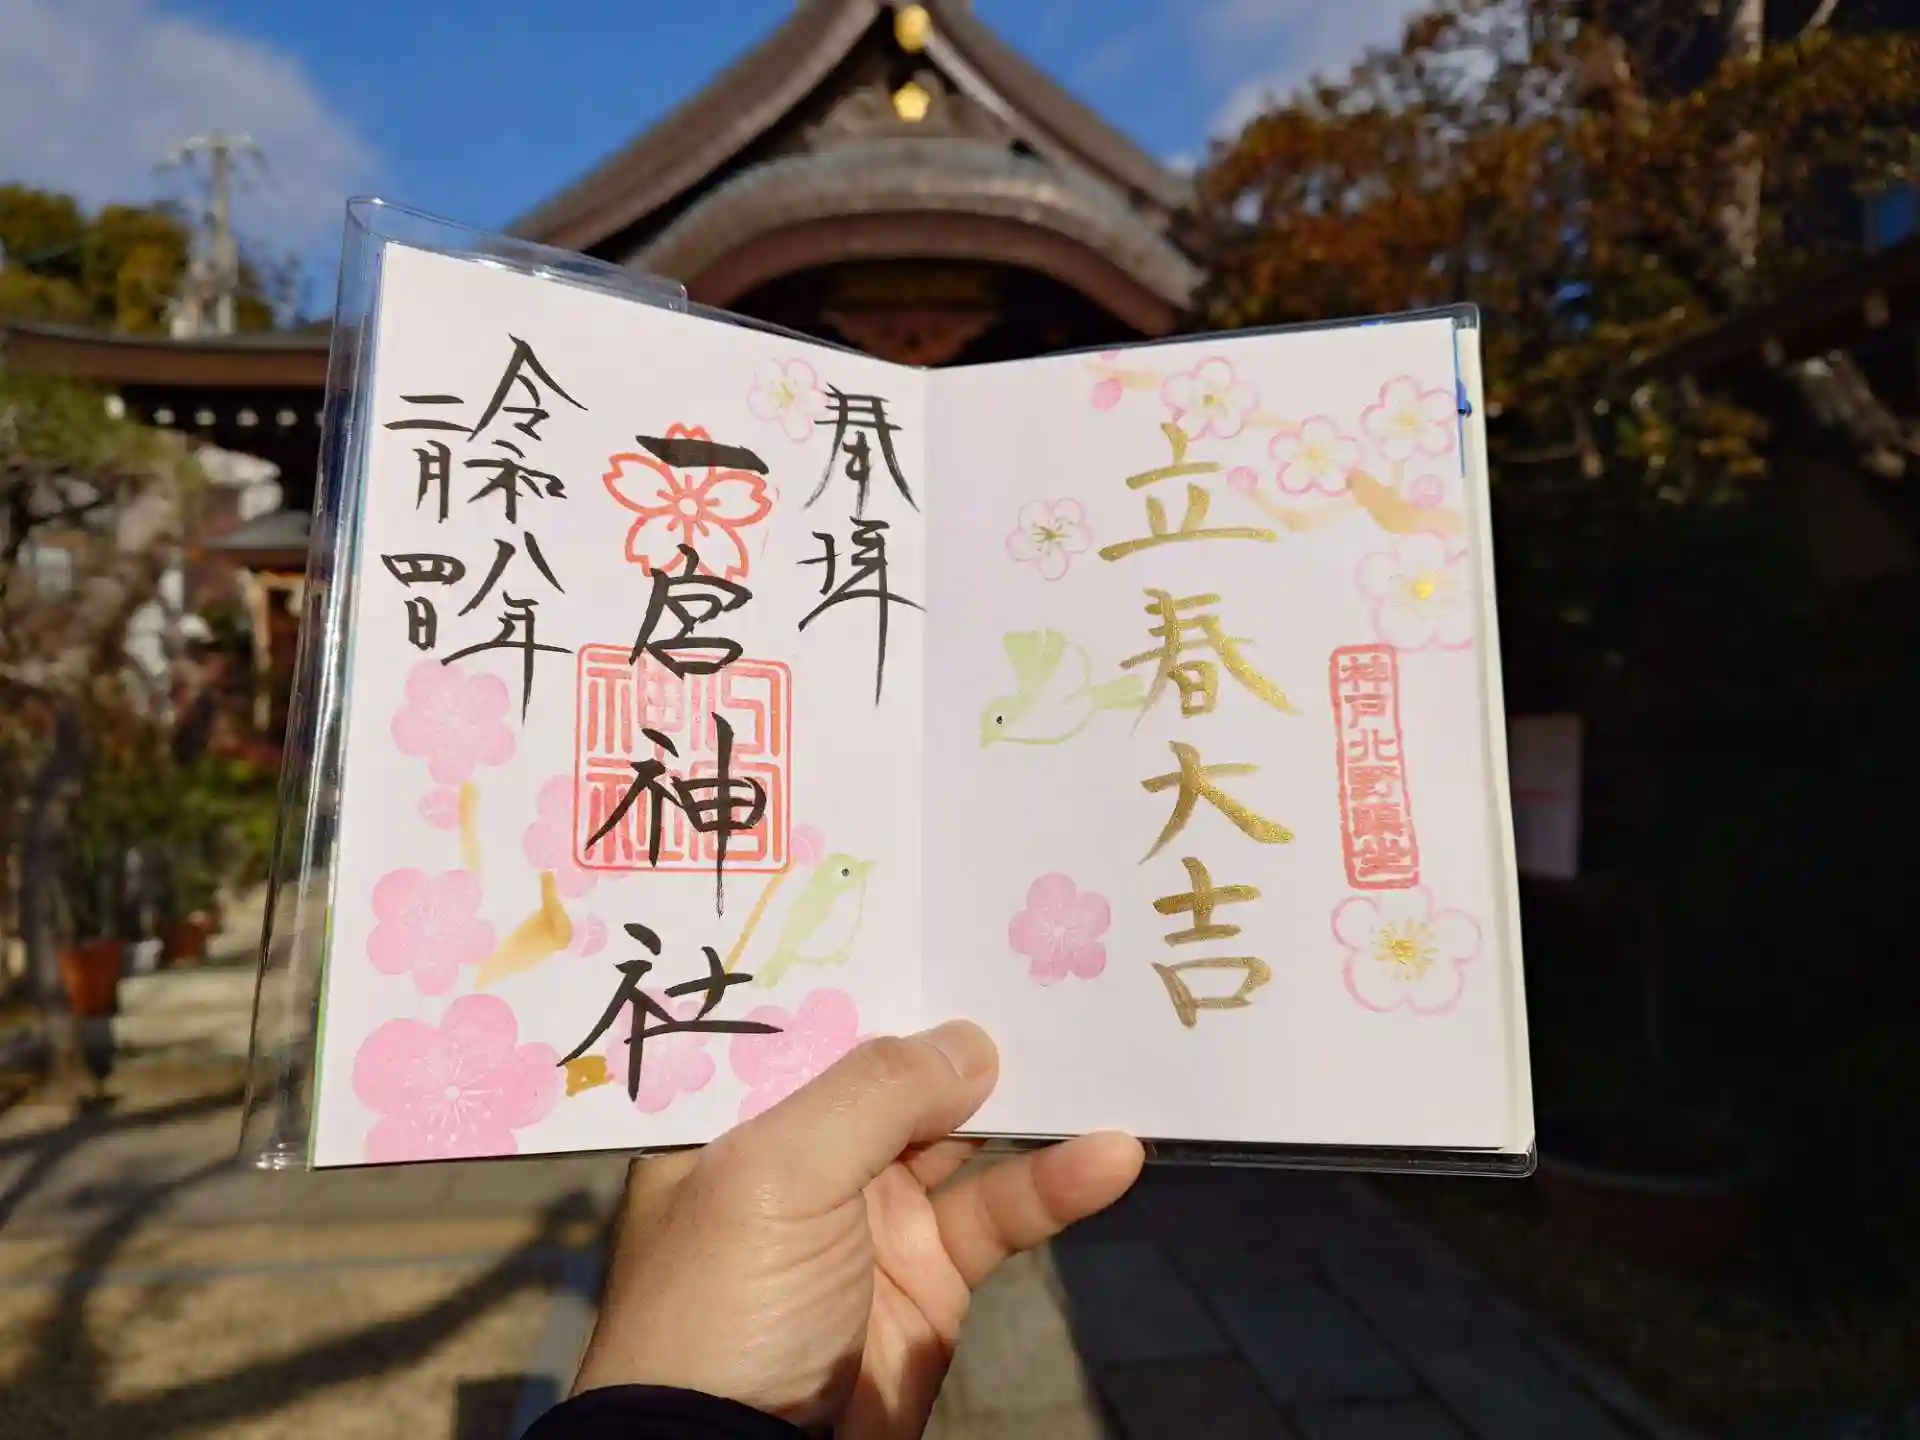 立春大吉
神戸北野鎮坐
奉拝
一宮神社
一宮神社
令和八年
二月四日